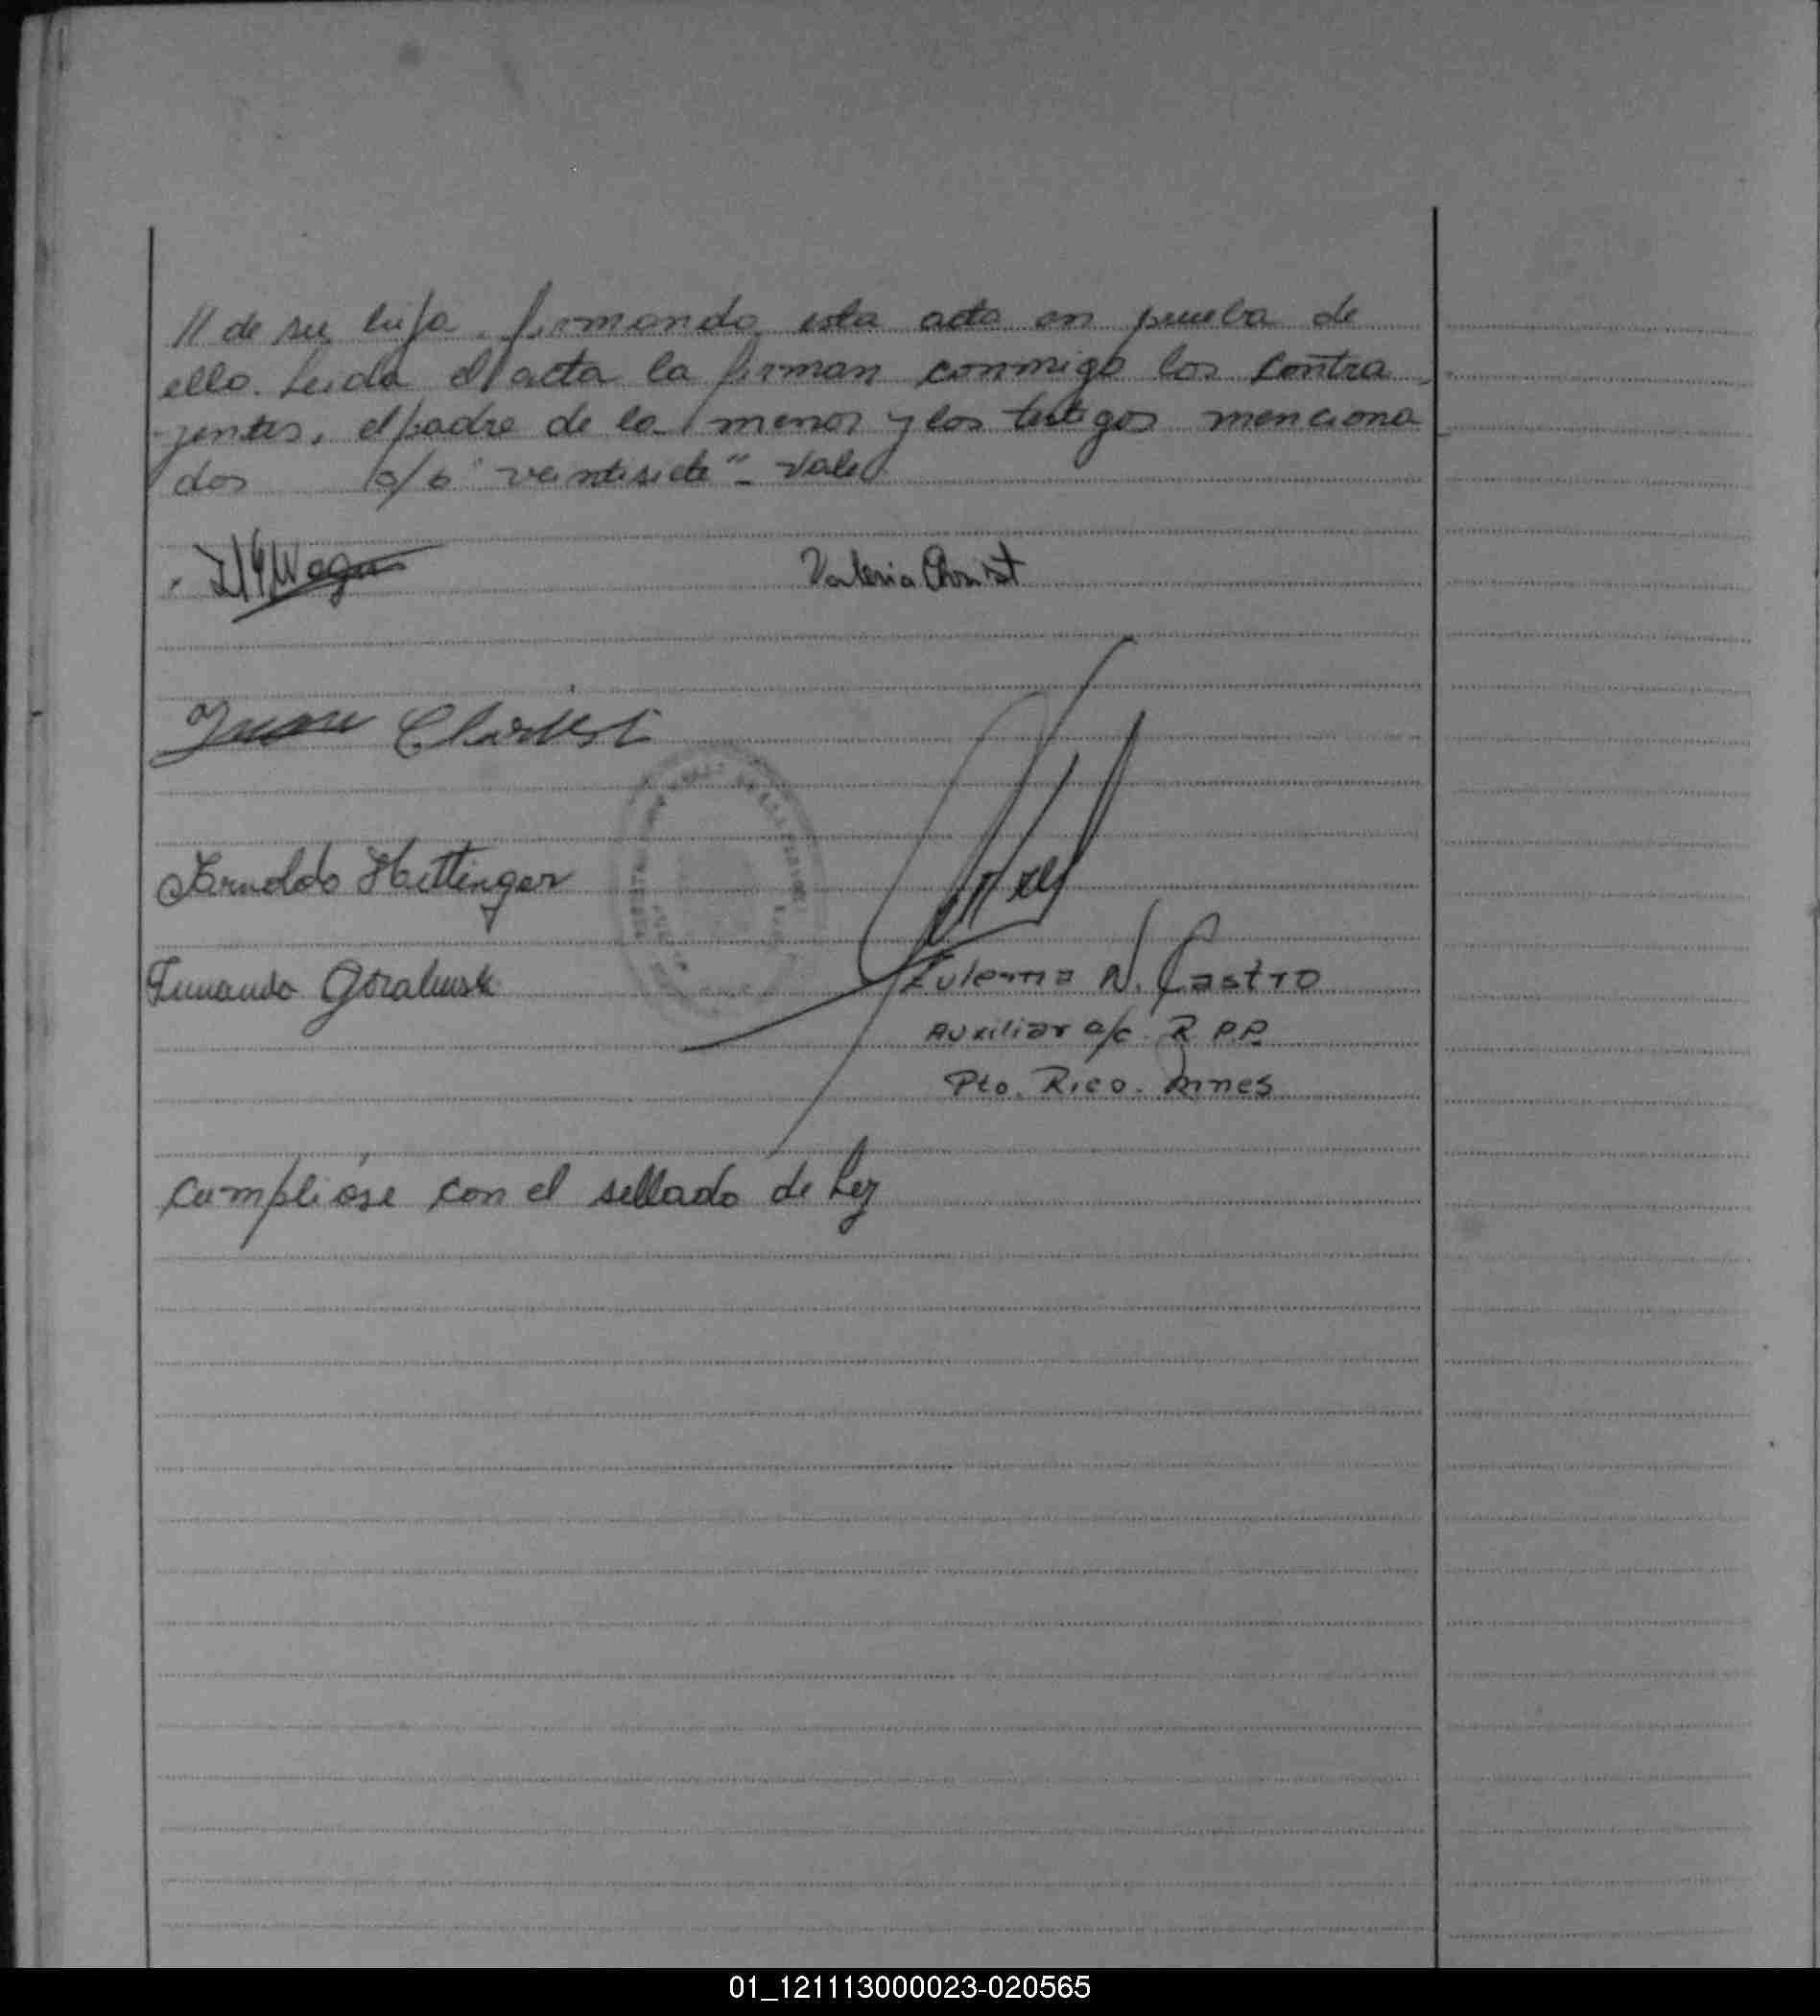 // de su hija firmando esta acta en prueba de
ello. Leida el acta la firman conmigo los contra
yentes, el padre de la menor y los testigos menciona
dos s/b "veintisiete" - Vale
Wagner Valeria Christ
Juan Christ
Arnoldo Hettinger
Fernando
Zulema N. Castro
Auxiliar a/c. R.P.P.
Pto. Rico. Mnes
cumplióse con el sellado de Ley
01_121113000023-020565